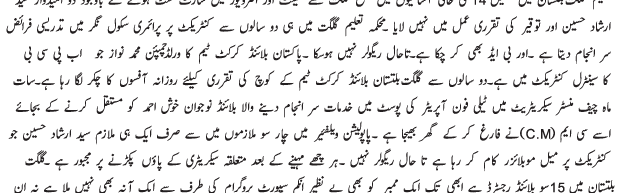 ارشاد حسین اور توقیر کی تقرری عمل میں نہیں لایا ۔محکمہ تعلیم گلگت میں ہی دو سالوں سے کنٹریکٹ پر پرائمری سکول نگر میں تدریسی فرائض
سر انجام دیتا ہے ۔اور بی ایڈ بھی کر چکا ہے۔تاحال ریگولر نہیں ہوسکا ۔پاکستان بلائنڈ کرکٹ ٹیم کا ورلڈچیمپئن محمد نواز جو اب پی سی بی
کا سینٹرل کنٹریکٹ میں ہے۔دو سالوں سے گلگت بلتستان بلائنڈ کرکٹ ٹیم کے کوچ کی تقرری کیلئے روزانہ آفسوں کا چکر لگا رہا ہے۔سات
ماہ چیف منسٹر سیکریٹریٹ میں ٹیلی فون آپریٹر کی پوسٹ میں خدمات سر انجام دینے والا بلائنڈ نوجوان خوش احمد کو مستقل کرنے کے بجائے
اسے سی ایم (C.M)نے فارغ کر کے گھر بھیجا ہے ۔پاپولیشن ویلفیئر میں چار سو ملازموں میں سے صرف ایک ہی ملازم سید ارشاد حسین جو
کنٹریکٹ پر میل موبلائزر کام کر رہا ہے تا حال ریگولر نہیں ۔ہر چھے مہینے کے بعد متعلقہ سیکریٹری کے پاؤں پکڑنے پر مجبور ہے ۔گلگت
بلتستان میں 15سو بلائنڈ رجسٹرڈ ہے ابھی تک ایک ممبر کو بھی بے نظیر انکم سپورٹ پروگرام کی طرف سے ایک آنہ بھی نہیں ملا ہے نہ ان